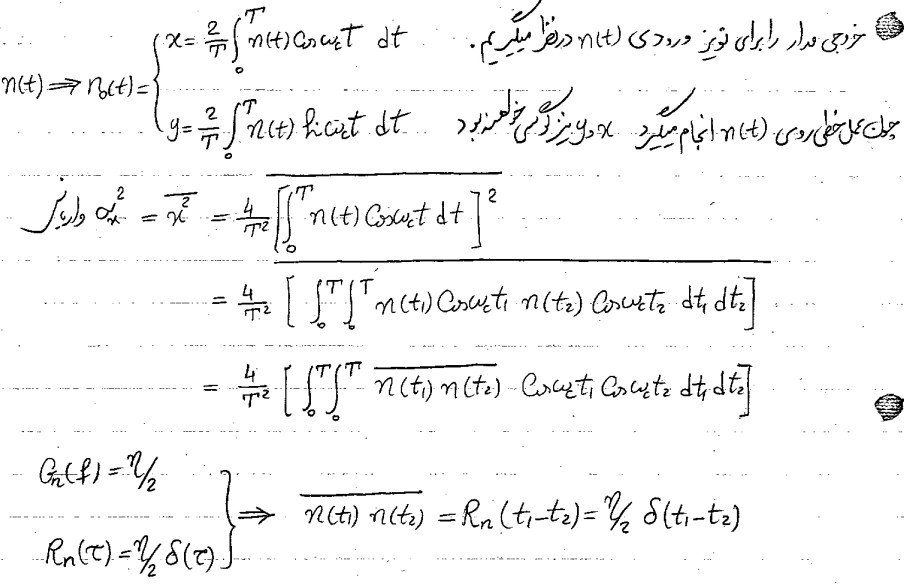 خروجی مدار را برای نویز ورودی n(t) درنظر میگیریم.
n(t) ⇒ n₀(t) = { x = 2/T ∫₀ᵀ n(t) Cos ω_c T dt
y = 2/T ∫₀ᵀ n(t) Sin ω_c t dt
چون عمل خطی روی n(t) انجام میگیرد x و y نیز گوسی خواهند بود
واریانس σₓ² = x̅²̅ = 4/T² [∫₀ᵀ n(t) Cos ω_c t dt]²
= 4/T² [∫₀ᵀ ∫₀ᵀ n(t₁) Cos ω_c t₁ n(t₂) Cos ω_c t₂ dt₁ dt₂]
= 4/T² [∫₀ᵀ ∫₀ᵀ n(t₁) n(t₂) Cos ω_c t₁ Cos ω_c t₂ dt₁ dt₂]
Gn(f) = η/2
Rn(τ) = η/2 δ(τ) } ⇒ n(t₁) n(t₂) = Rn(t₁-t₂) = η/2 δ(t₁-t₂)